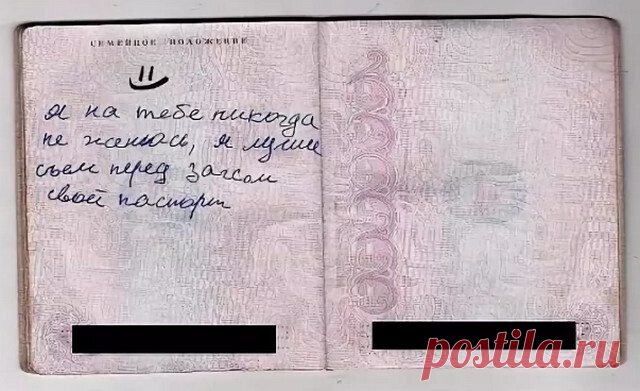 СЕМЕЙНОЕ ПОЛОЖЕНИЕ
я на тебе никогда
не женюсь, я лучше
съем перед загсом
свой паспорт
postila.ru